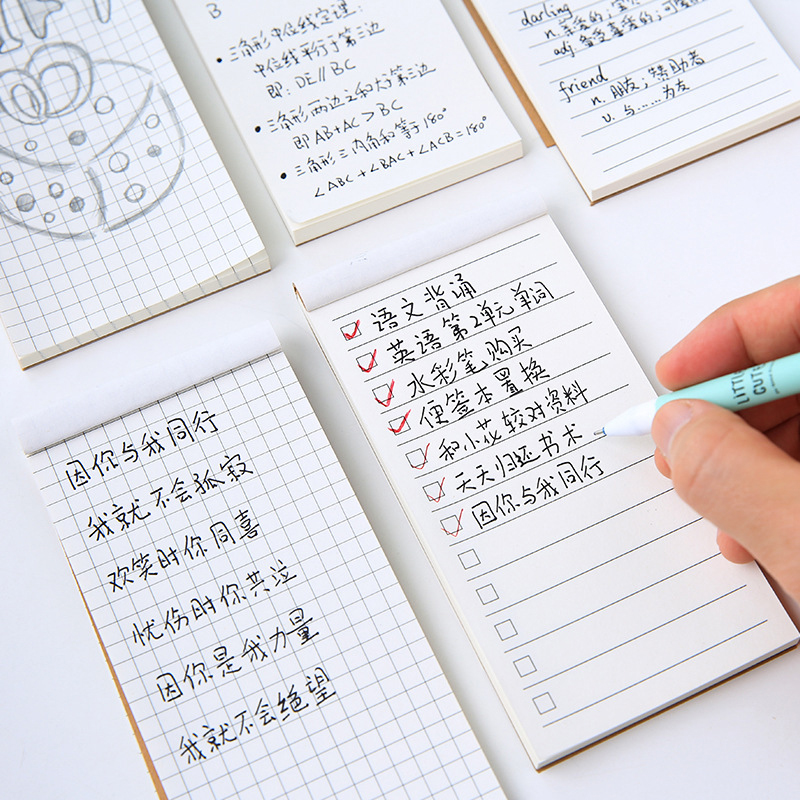 B
三角形中位线定理:
中位线平行于第三边
即: DE//BC
三角形两边之和大于第三边
即 AB+AC > BC
三角形三内角和等于180°
∠ABC + ∠BAC + ∠ACB = 180°
darling
n. 亲爱的; 
adj. 备受喜爱的; 可爱
friend
n. 朋友; 赞助者
v. 与……为友
语文背诵
英语第2单元单词
水彩笔购买
便签本置换
和小花较对资料
天天归还书术
因你与我同行
LITTLE
CUTE
因你与我同行
我就不会孤寂
欢笑时你同喜
忧伤时你共泣
因你是我力量
我就不会绝望